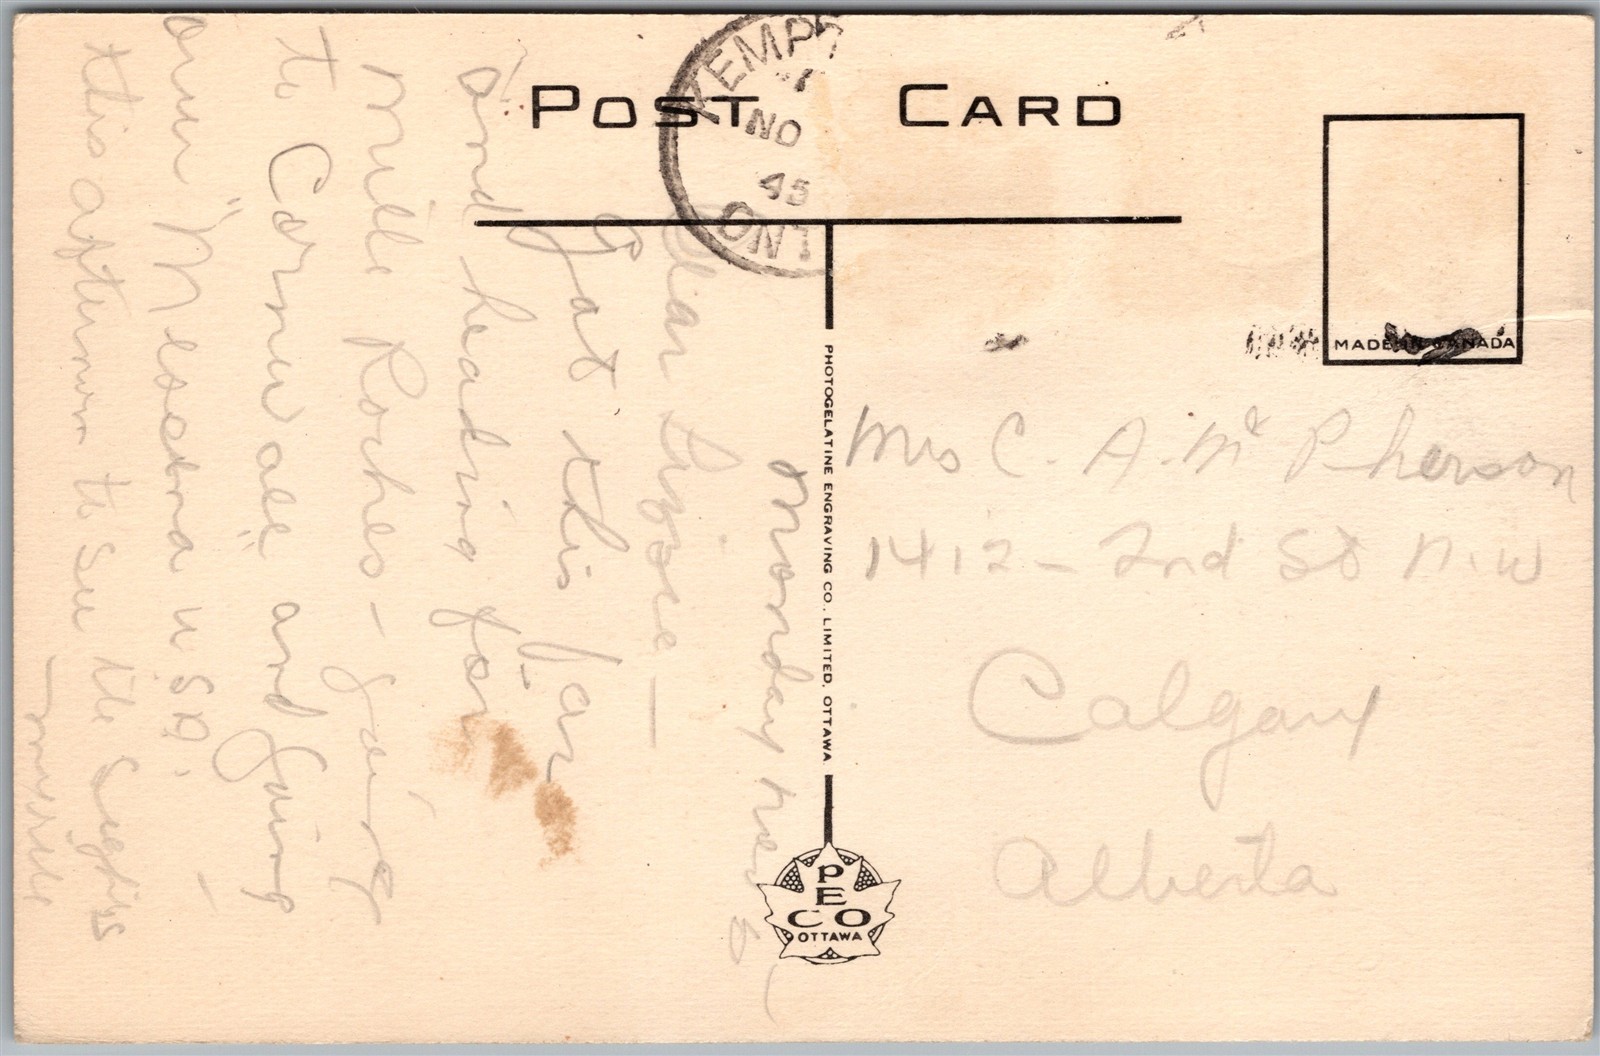 POST CARD
KEMPT
NO
45
ONT
MADE IN CANADA
Monday Nov 5
Dear Lizzie –
Got this far
and heading for
Mille Roches – going
to Cornwall and going
over "Messena U S A.
this afternoon to see the sights
Myrtle
Mrs C. A. Mc Pherson
1412 – 2nd St N. W
Calgary
Alberta
PHOTOGELATINE ENGRAVING CO. LIMITED. OTTAWA
PECO
OTTAWA